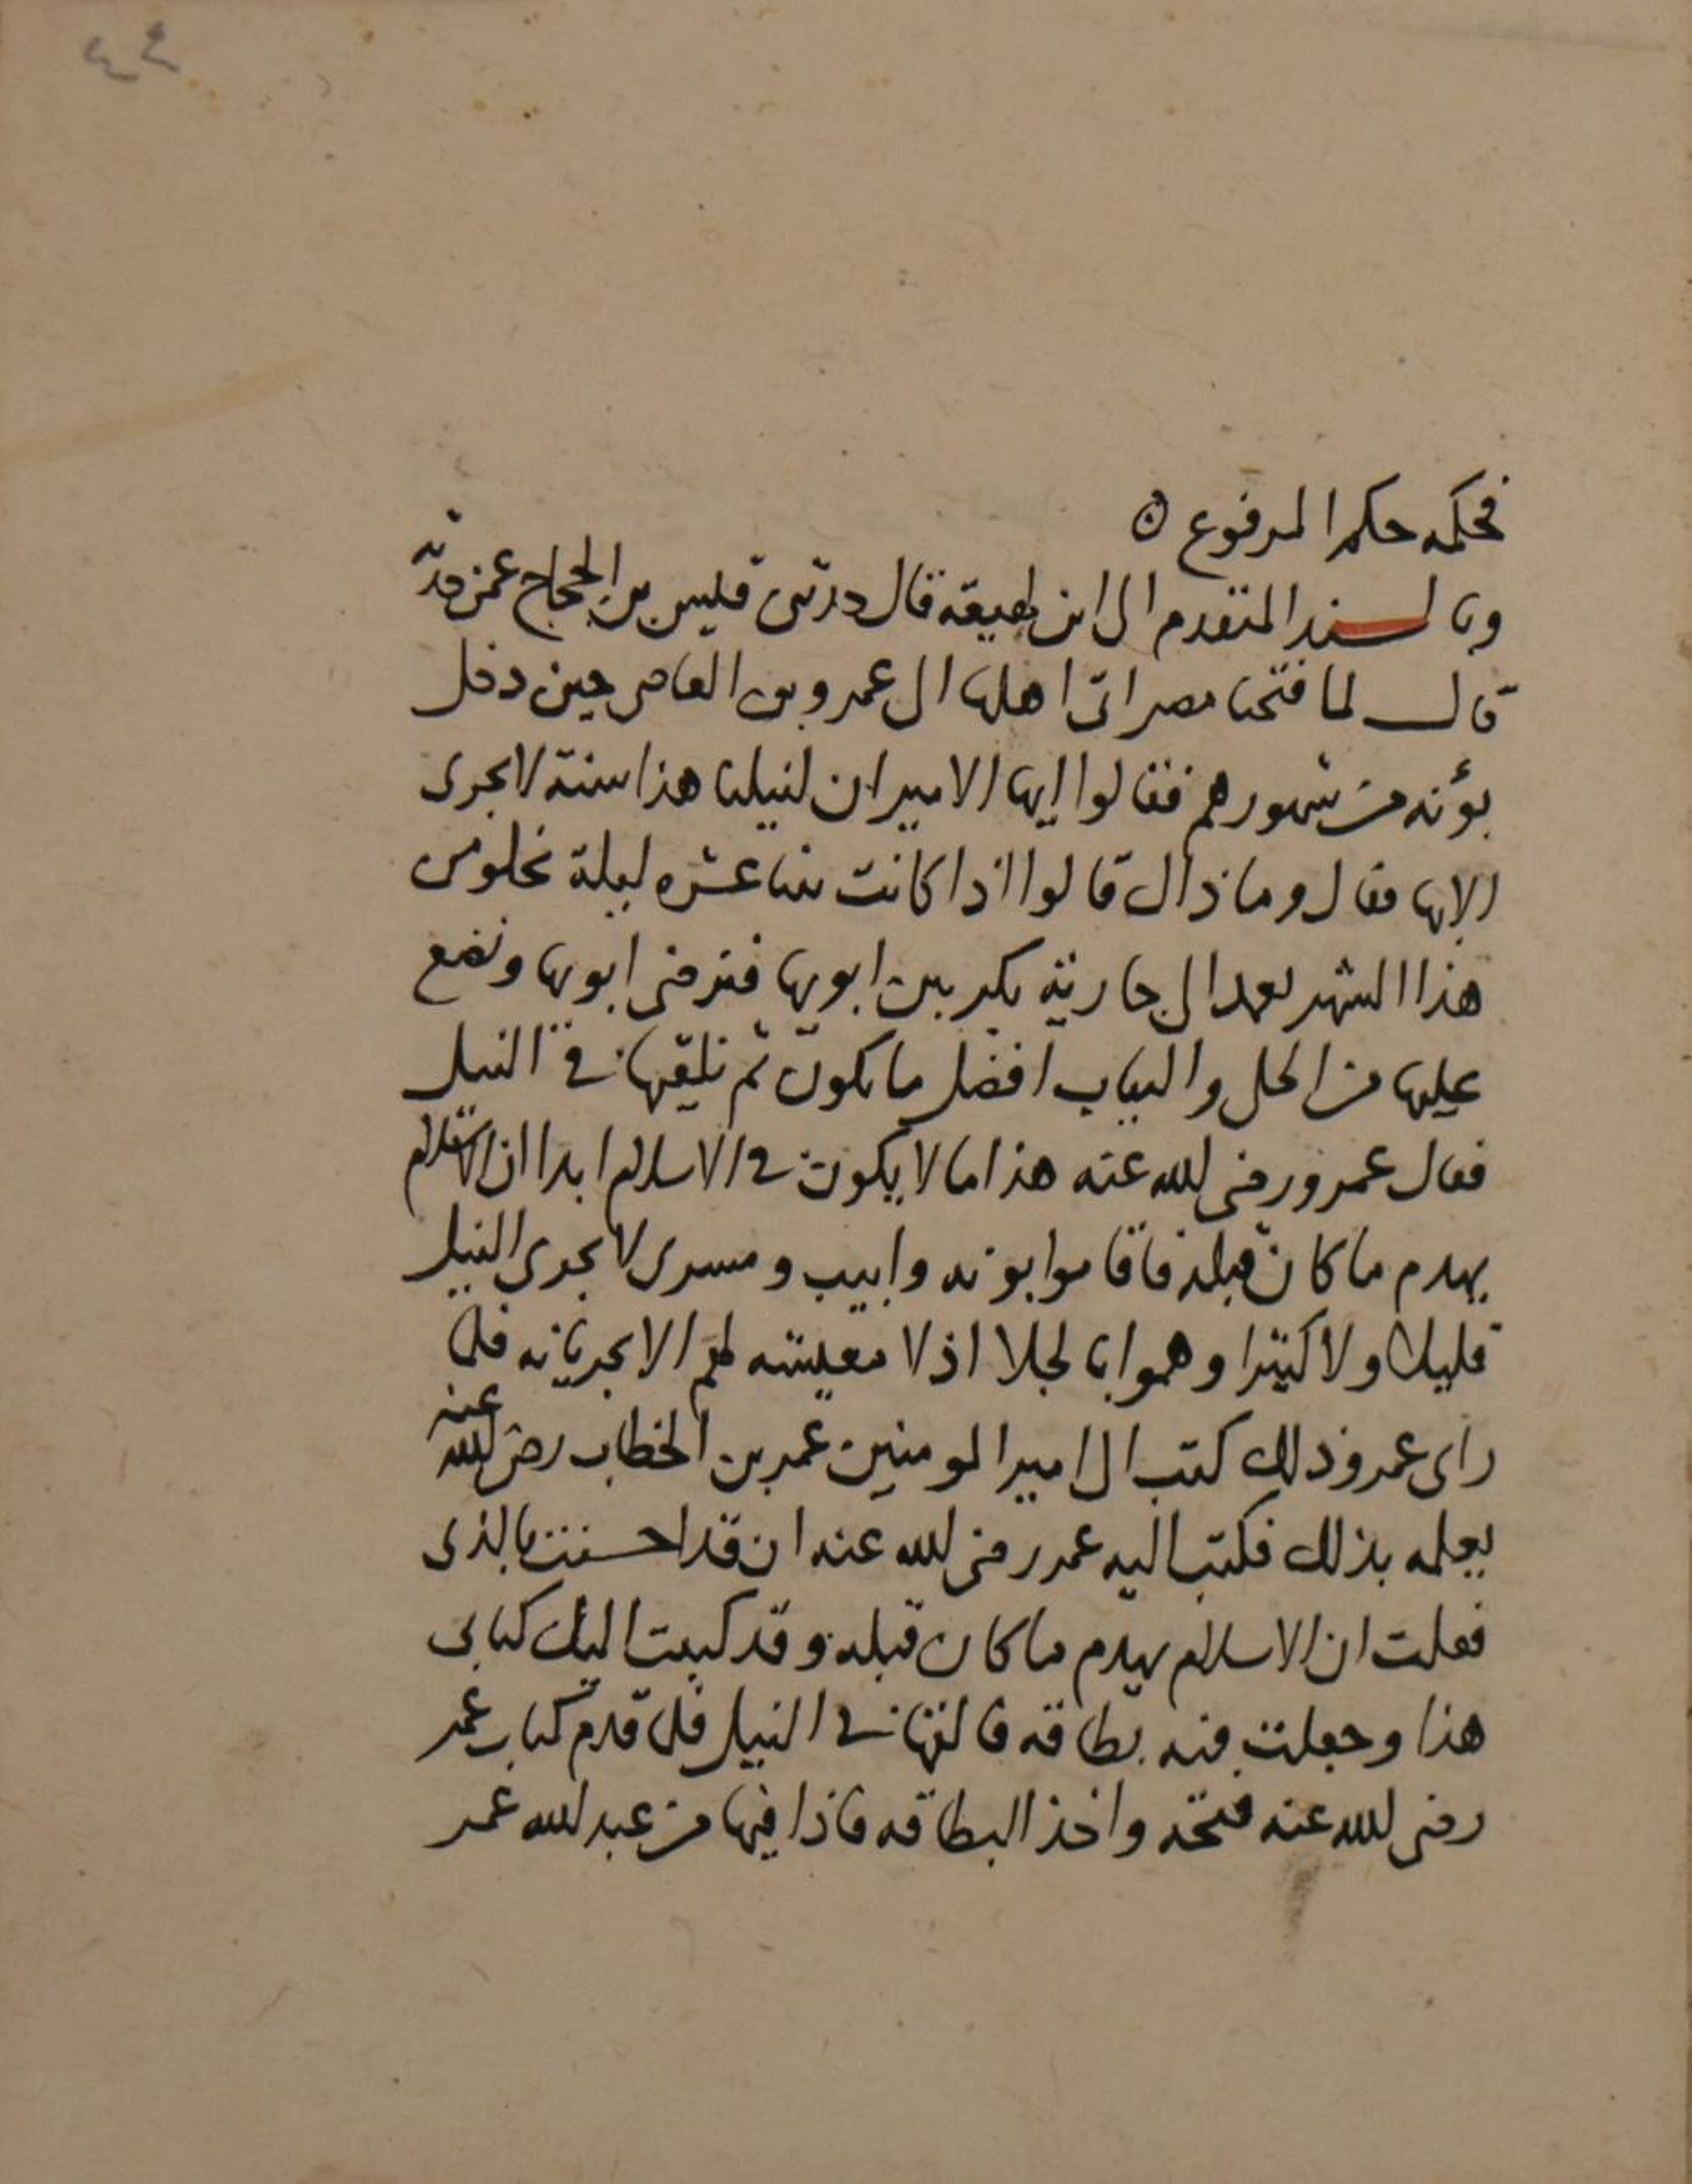 ٤٤
فحكمه حكم المرفوع ه
وبالسند المتقدم الى ابن لهيعة قال حدثنى قيس بن الحجاج عمن حدثه
قال لما فتحنا مصر اتى اهلها الى عمرو بن العاص حين دخل
بؤنه من شهورهم فقالوا ايها الامير ان لنيلنا هذا سنة لا يجرى
الا بها فقال وما ذاك قالوا اذا كانت ثنتا عشره ليلة تخلو من
هذا الشهر نعمد الى جارية بكر بين ابويها فنرضى ابويها ونضع
عليها من الحلى والثياب افضل ما يكون ثم نلقيها فى النيل
فقال عمرو رضى الله عنه هذا ما لا يكون فى الاسلام ابدا ان الاسلام
يهدم ما كان قبله فاقاموا بونه وابيب ومسرى لا يجرى النيل
قليلا ولا كثيرا وهموا بالجلا اذ لا معيشه لهم الا بجريانه فلما
راى عمرو ذلك كتب الى امير المومنين عمر بن الخطاب رضى الله عنه
يعلمه بذلك فكتب اليه عمر رضى الله عنه ان قد احسنت بالذى
فعلت ان الاسلام يهدم ما كان قبله وقد كتبت اليك كتابى
هذا وجعلت فيه بطاقه فالقها فى النيل فلما قدم كتاب عمر
رضى الله عنه فتحه واخذ البطاقه فاذا فيها من عبد الله عمر